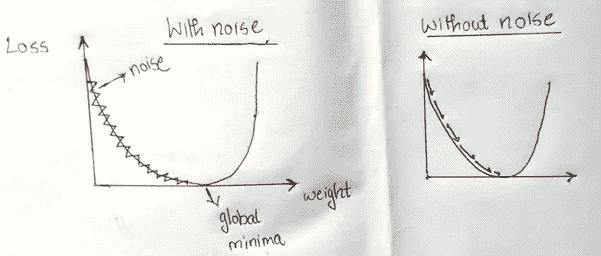 With noise
Loss
noise
weight
global
minima
without noise